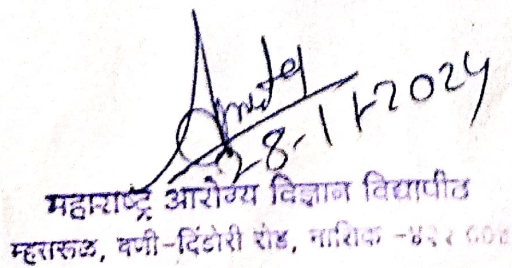 28-11-2024
महाराष्ट्र आरोग्य विज्ञान विद्यापीठ
म्हसरूळ, वणी-दिंडोरी रोड, नाशिक -४२२ ००४